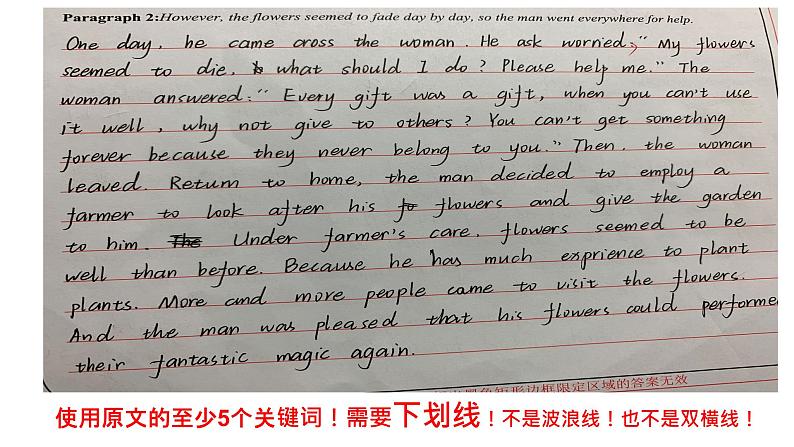 Paragraph 2:However, the flowers seemed to fade day by day, so the man went everywhere for help.
One day, he came cross the woman. He ask worried," My flowers
seemed to die, what should I do? Please help me." The
woman answered: " Every gift was a gift, when you can't use
it well, why not give to others? You can't get something
forever because they never belong to you." Then, the woman
leaved. Return to home, the man decided to employ a
farmer to look after his flowers and give the garden
to him. Under farmer's care. flowers seemed to be
well than before. Because he has much exprience to plant
plants. More and more people came to visit the flowers.
And the man was pleased that his flowers could performe
their fantastic magic again.
黑色矩形边框限定区域的答案无效
使用原文的至少5个关键词！需要下划线！不是波浪线！也不是双横线！